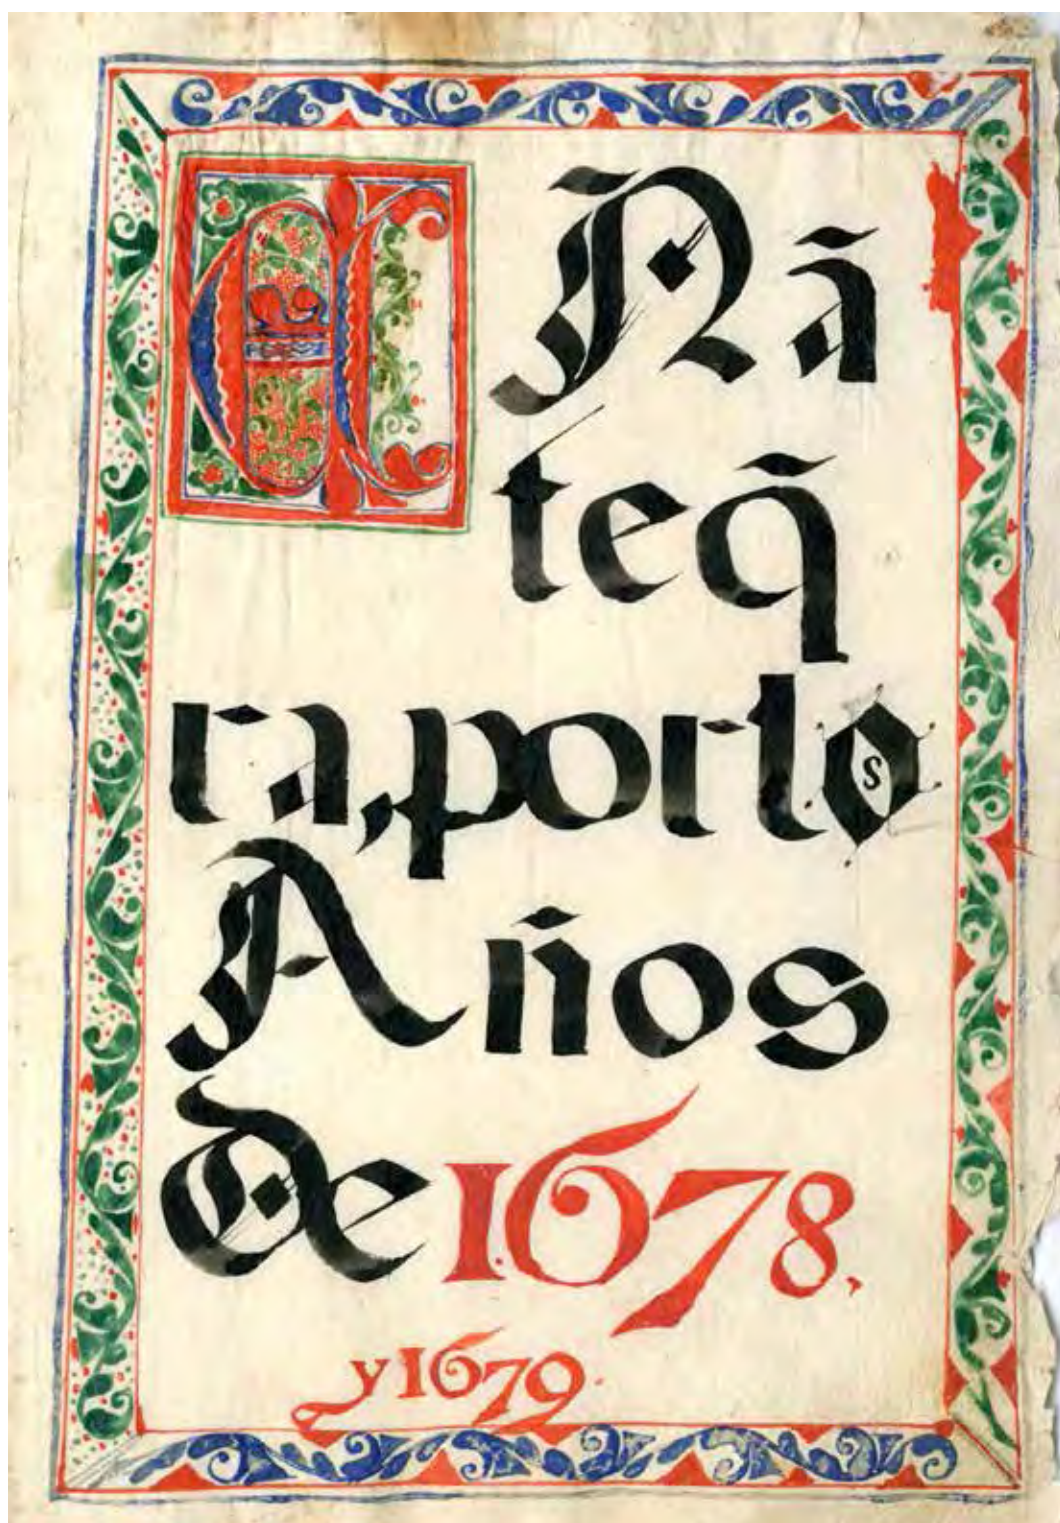 M Ña᷉
teq̃
ra, por los
Años
de 1678,
y 1679.